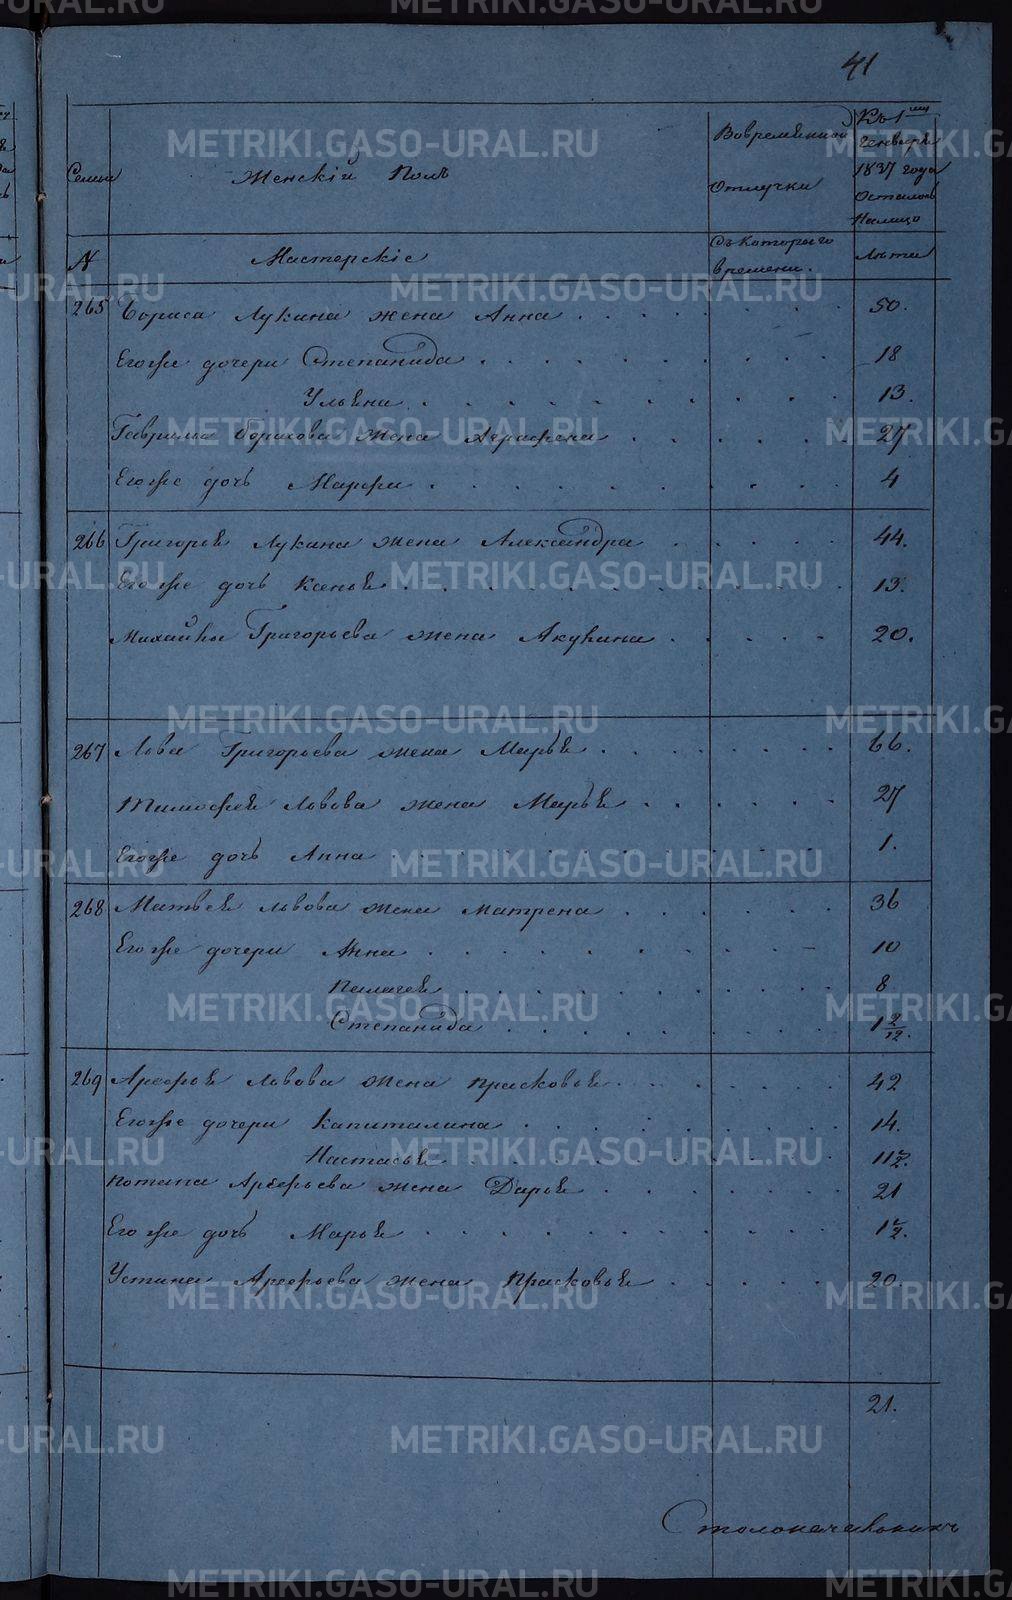 41
Семьи
Женскій Полъ
Вовременной
Отлучки
Къ 1
генваря
1837 года
Осталось
Налицо
№
Мастерскіе
Съ которого
времени.
Лѣта
265 Бориса Лукина жена Анна 50.
Егоже дочери Степанида 18
Ульяна 13.
Гаврила борисова жена Аграфена 27
Егоже дочь Марфа 4
266 Григорья Лукина жена Александра 44.
Егоже дочь Ксенья 13.
Михайлы Григорьева жена Акулина 20.
267 Льва Григорьева жена Марья 66.
Тимофея Львова жена Марья 27
Егоже дочь Анна 1.
268 Матвея львова жена матрена 36
Егоже дочери Анна 10
Пелагея 8
Степанида 1 2/12.
269 Арефья львова жена прасковья 42
Егоже дочери Капиталина 14.
Настасья 11 1/2.
Потапа Арефьева жена Дарья 21
Егоже дочь Марья 1 1/2.
Устина Арефьева жена Прасковья 20.
21.
Столоначальникъ
METRIKI.GASO-URAL.RU